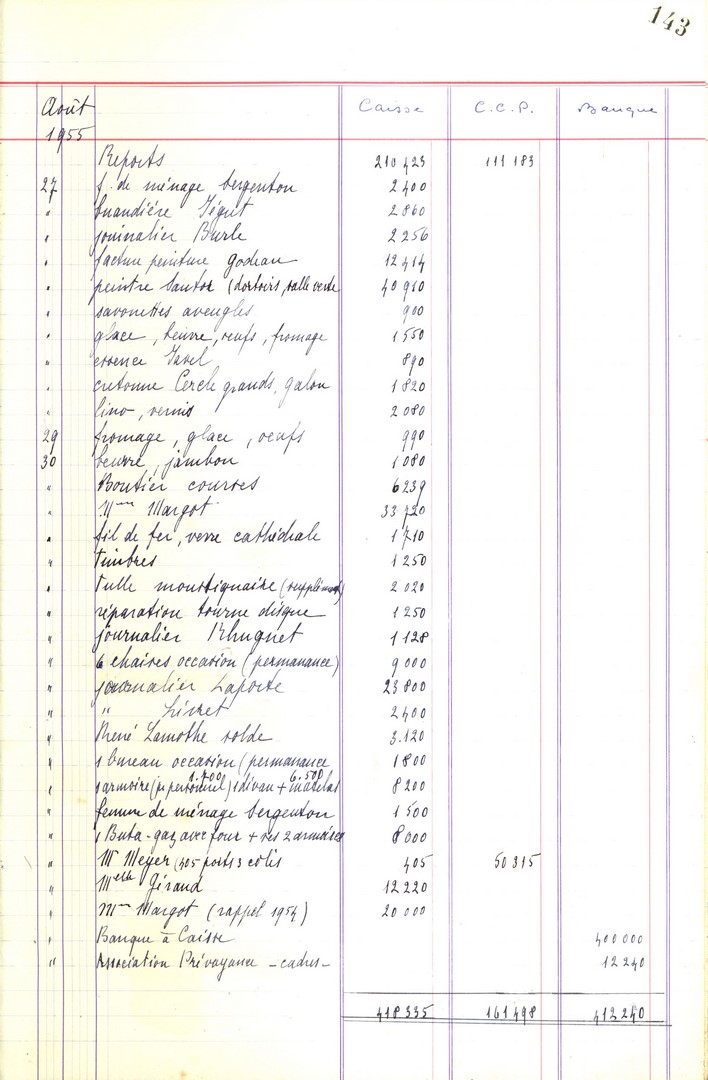 143
Août Caisse C.C.P. Banque
1955
Reports 210 423 111 183
27 f. de ménage Sergenton 2 400
" buandière Jégut 2 860
" journalier Burle 2 256
" facture peinture godeau 12 414
" peintre Santos (dortoirs, salle verte 40 910
" savonettes aveugles 900
" glace, beurre, oeufs, fromage 1 550
" essence Javel 890
" cretonne Cercle grands, galon 1 820
" lino, vernis 2 080
29 fromage, glace, oeufs 990
30 beurre, jambon 1 080
" Boutier courses 6 239
" Mme Margot 33 720
" fil de fer, verre cathédrale 1 710
" Timbres 1 250
" Tulle moustiquaire (supplément) 2 020
" réparation tourne disque 1 250
" journalier Rhuguet 1 128
" 6 chaires occasion (permanance) 9 000
" journalier Laporte 23 800
" " Livret 2 400
" René Lamothe solde 3.120
" 1 bureau occasion (permanance 1 800
1.700 6.500
" 1 armoire (pr personnel) 1 divan + matelas 8 200
" femme de ménage Sergenton 1 500
" 1 Buta-gaz avec four + ses 2 armoires 8 000
" Mr Meyer (405 ports 3 colis 405 50 315
" Melle Giraud 12 220
" Mme Margot (rappel 1954) 20 000
" Banque à Caisse 400 000
" Association Prévoyance - cadres - 12 240
418 335 161 498 412 240